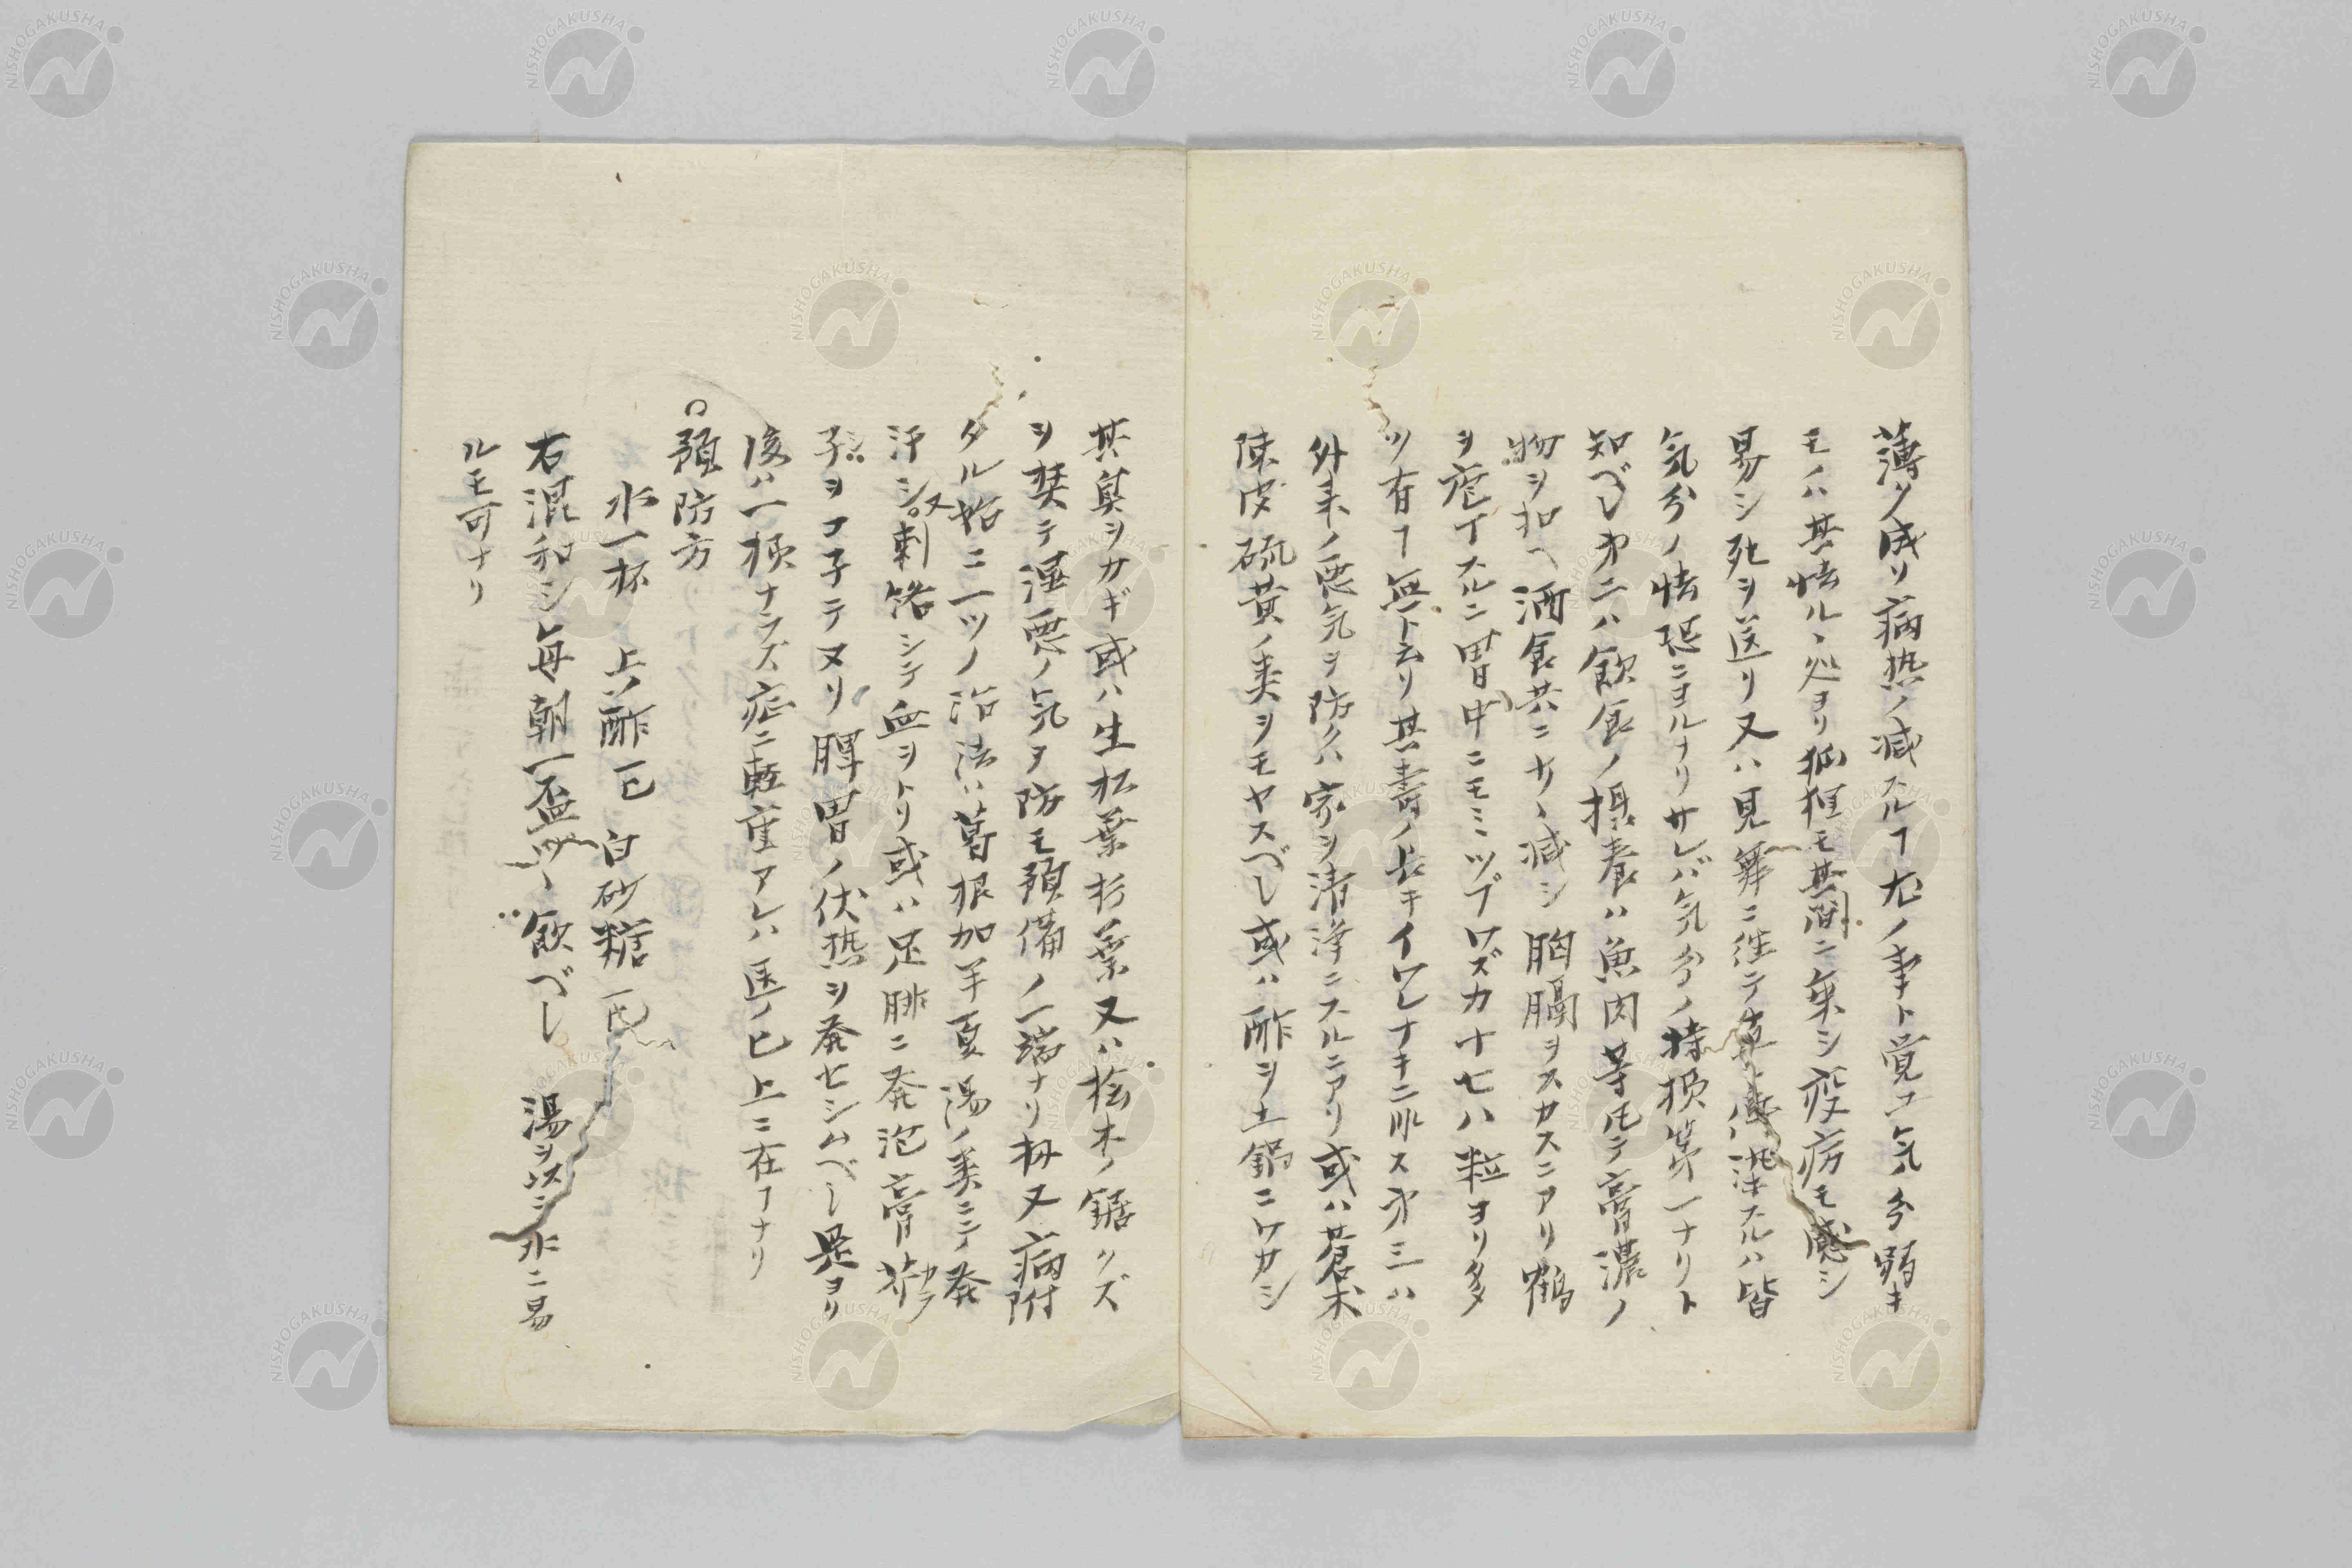 薄ク成リ病热ノ減スルヿ尤ノ事ト覚ユ気分弱キ
モノハ其怯ルヽ処ヨリ狐狸モ其間ニ乗シ疫病モ感シ
易シ死ヲ送リ又ハ見舞ニ往テ直ニ傳染スルハ皆
気分ノ怯恐ニヨルナリサレバ気分ノ持損第一ナリト
知べし才二ハ飲食ノ摂養ハ魚肉等凡テ膏濃ノ
物ヲ扣ヘ酒食共ニサヽ減シ胸膈ヲスカスニアリ鶴
ヲ庖丁スルニ胃中ニモミツブワズカ十七八粒ヨリ多
ツ有ヿ無ト云リ其壽ノ長キイワレナキニ非ス才三ハ
外来ノ悪気ヲ防クハ家ヲ清浄ニスルニアリ或ハ蒼朮
陳皮硫黄ノ美ヲモヤスべし或ハ酢ヲ土鍋ニワカシ
其臭ヲカギ或ハ生松葉杉葉又ハ桧木ノ鋸クズ
ヲ焚テ湿悪ノ気ヲ防モ預備ノ一端ナリ扨又病附
タル始ニ一ツノ治法ハ葛根加半夏湯ノ美ニテ発
汗シ或刺絡シテ血ヲトリ或ハ足腓ニ発泡膏芥カラ
子シヲコ子テヌリ脾胃ノ伏热ヲ発セシムべし是ヨリ
後ハ一様ナラズ症ニ軽重アレハ医ノ匕上ニ在ヿナリ
○預防方
水一杯 上酢一匕 白砂糖一匕
右混和シ毎朝一盃ツヽ飲べし 湯ヲ以テ水ニ易
ルモ可ナリ